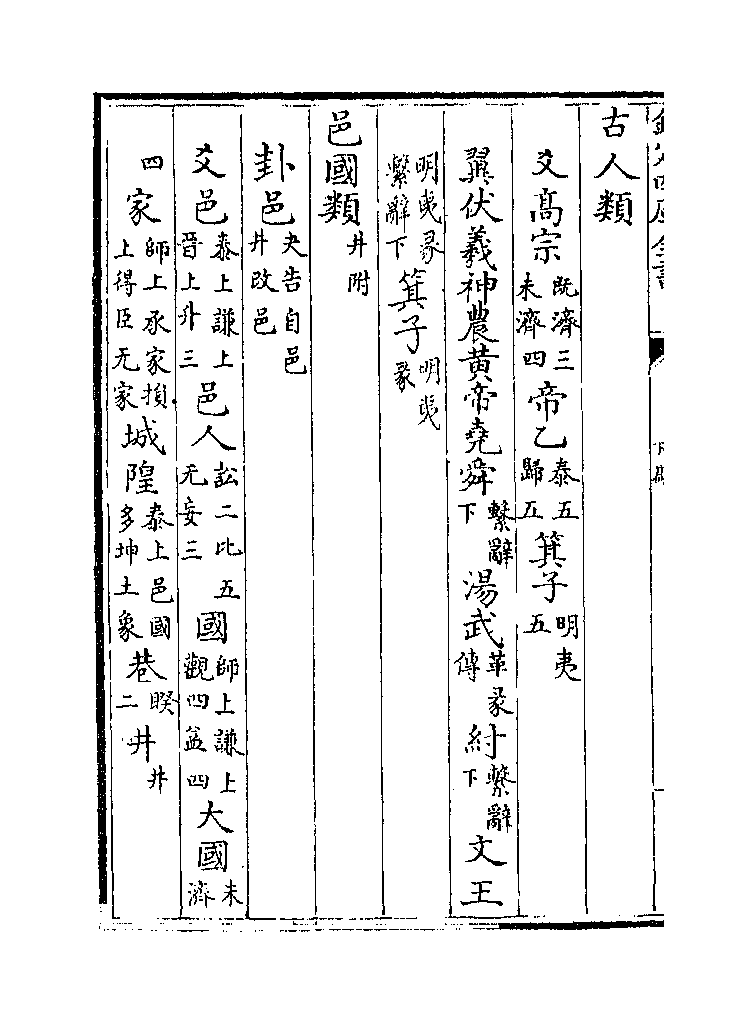 古人類
爻髙宗既濟三未濟四帝乙泰五歸五箕子明夷五
翼伏羲神農黄帝堯舜繫辭下湯武革彖傳紂繫辭下文王
明夷彖繫辭下箕子明夷彖
邑國類井附
卦邑夬告自邑井改邑
爻邑泰上謙上晉上升三邑人訟二比五无妄三國師上謙上觀四益四大國未濟
四家師上承家損上得臣无家城隍泰上邑國多坤土象巷睽二井井